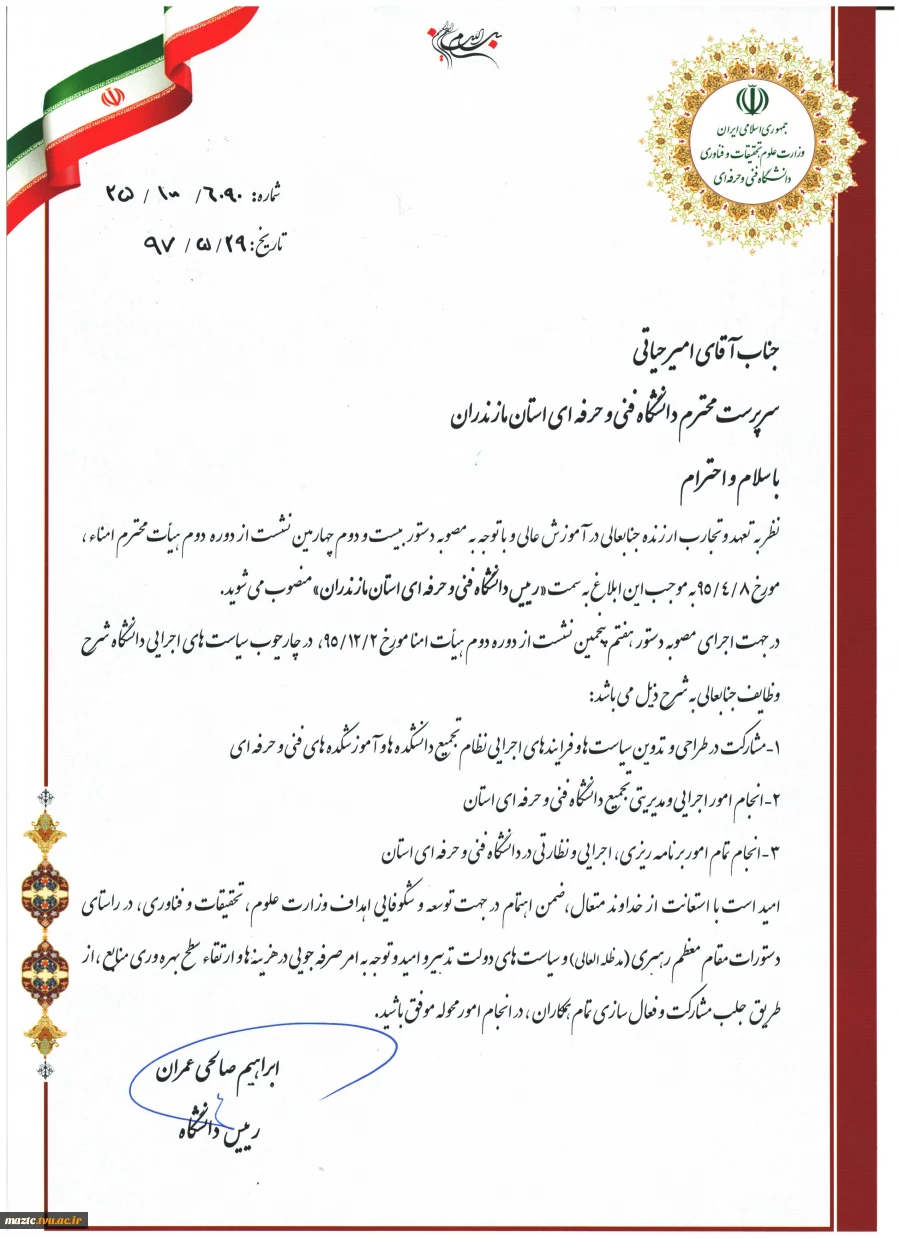 بسم الله الرحمن الرحیم
جمهوری اسلامی ایران
وزارت علوم تحقیقات و فناوری
دانشگاه فنی و حرفه ای
شماره: ۶۰۹۰/ ۱۰۰ / ۲۵
تاریخ: ۲۹/ ۵ / ۹۷
جناب آقای امیر حیاتی
سرپرست محترم دانشگاه فنی و حرفه ای استان مازندران
با سلام و احترام
نظر به تعهد و تجارب ارزنده جنابعالی در آموزش عالی و با توجه به مصوبه دستور بیست و دوم چهارمین نشست از دوره دوم هیأت محترم امناء ،
مورخ ۹۵/۴/۸ به موجب این ابلاغ به سمت «رییس دانشگاه فنی و حرفه ای استان مازندران» منصوب می شوید.
در جهت اجرای مصوبه دستور هفتم پنجمین نشست از دوره دوم هیأت امنا مورخ ۹۵/۱۲/۲، در چارچوب سیاست های اجرایی دانشگاه شرح
وظایف جنابعالی به شرح ذیل می باشد:
۱-مشارکت در طراحی و تدوین سیاست ها و فرایندهای اجرایی نظام تجمیع دانشکده ها و آموزشکده های فنی و حرفه ای
۲-انجام امور اجرایی و مدیریتی تجمیع دانشگاه فنی و حرفه ای استان
۳-انجام تمام امور برنامه ریزی، اجرایی و نظارتی در دانشگاه فنی و حرفه ای استان
امید است با استعانت از خداوند متعال، ضمن اهتمام در جهت توسعه و شکوفایی اهداف وزارت علوم، تحقیقات و فناوری، در راستای
دستورات مقام معظم رهبری (مدظله العالی) و سیاست های دولت تدبیر و امید و توجه به امر صرفه جویی در هزینه ها و ارتقاء سطح بهره وری منابع ، از
طریق جلب مشارکت و فعال سازی تمام همکاران ، در انجام امور محوله موفق باشید.
ابراهیم صالحی عمران
رییس دانشگاه
maztc.tvu.ac.ir